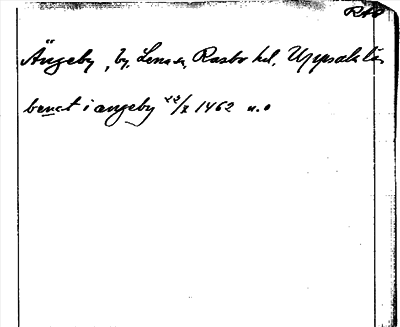 Ängeby, by, Lena sn, Rasbo hd, Uppsala län
benct i angeby 22/X 1462 n.o